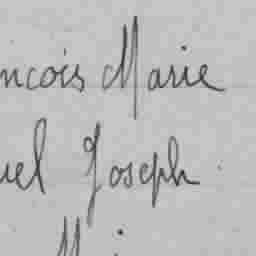 ncois Marie
uel Joseph